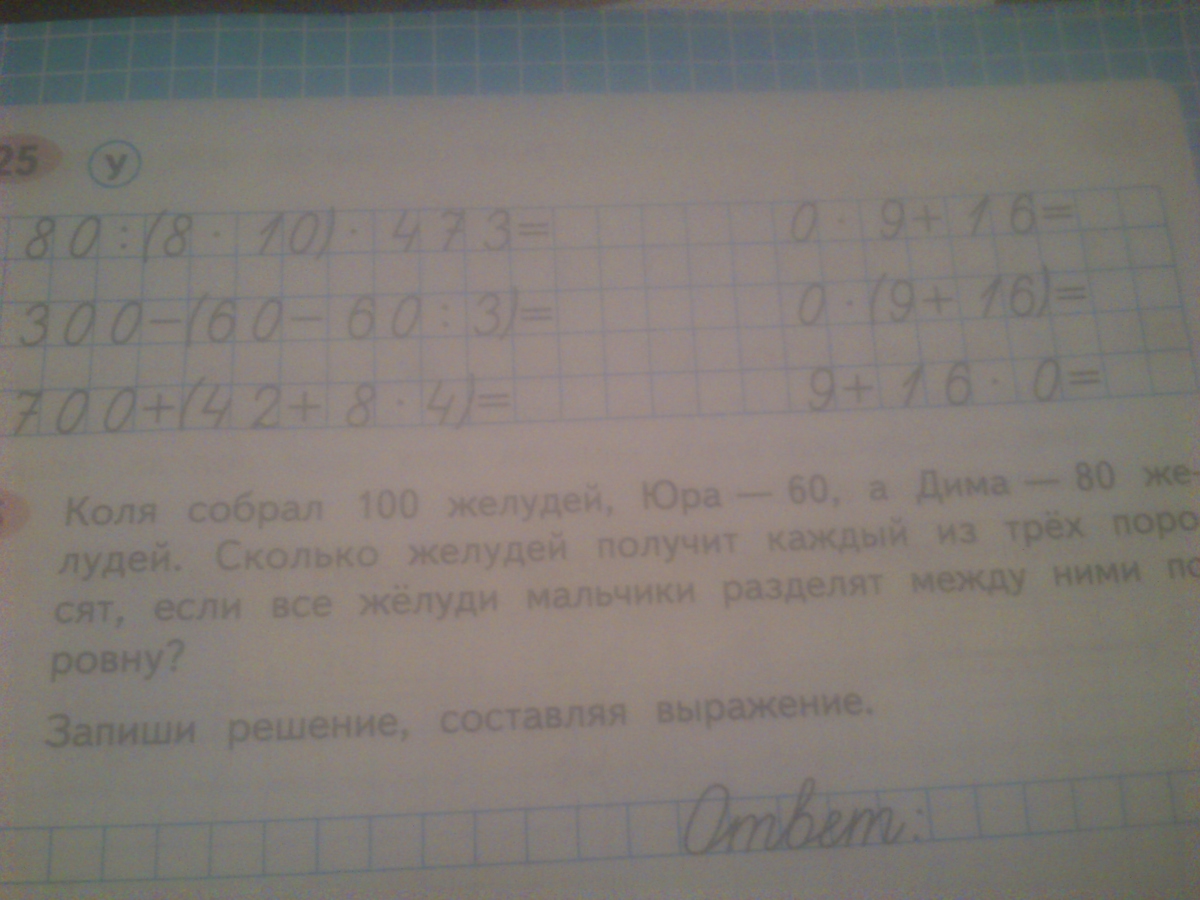 25 У
80:(8 · 10) · 473=
0 · 9+16=
300−(60−60:3)=
0 · (9+16)=
700+(42+8 · 4)=
9+16 · 0=
Коля собрал 100 желудей, Юра — 60, а Дима — 80 же-
лудей. Сколько желудей получит каждый из трёх поро-
сят, если все жёлуди мальчики разделят между ними по
ровну?
Запиши решение, составляя выражение.
Ответ: